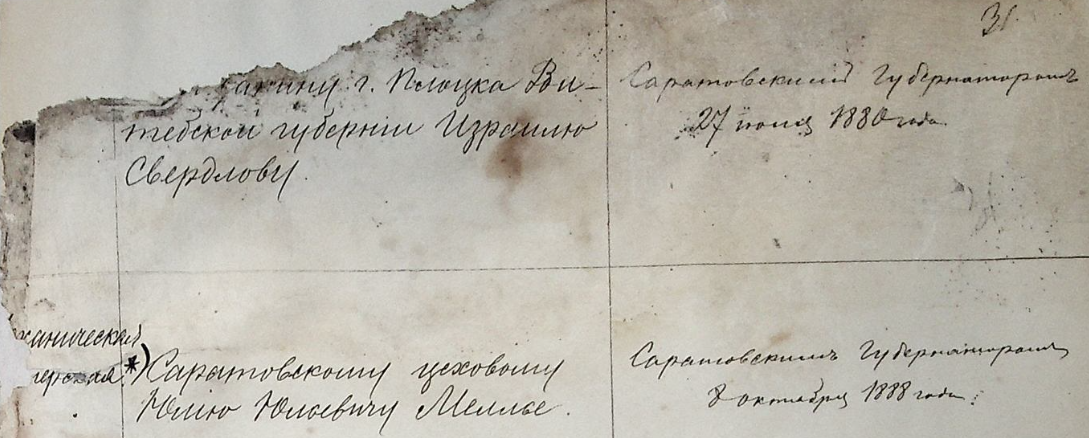 31.
г. Полоцка Ви-
тебской губернии Израилю
Свердлову.
Саратовскимъ Губернаторомъ
27 1880 года
ханической
*) Саратовскому цеховому
Юлію Юльевичу Мелльё.
Саратовскимъ Губернаторомъ
8 октября 1888 года.